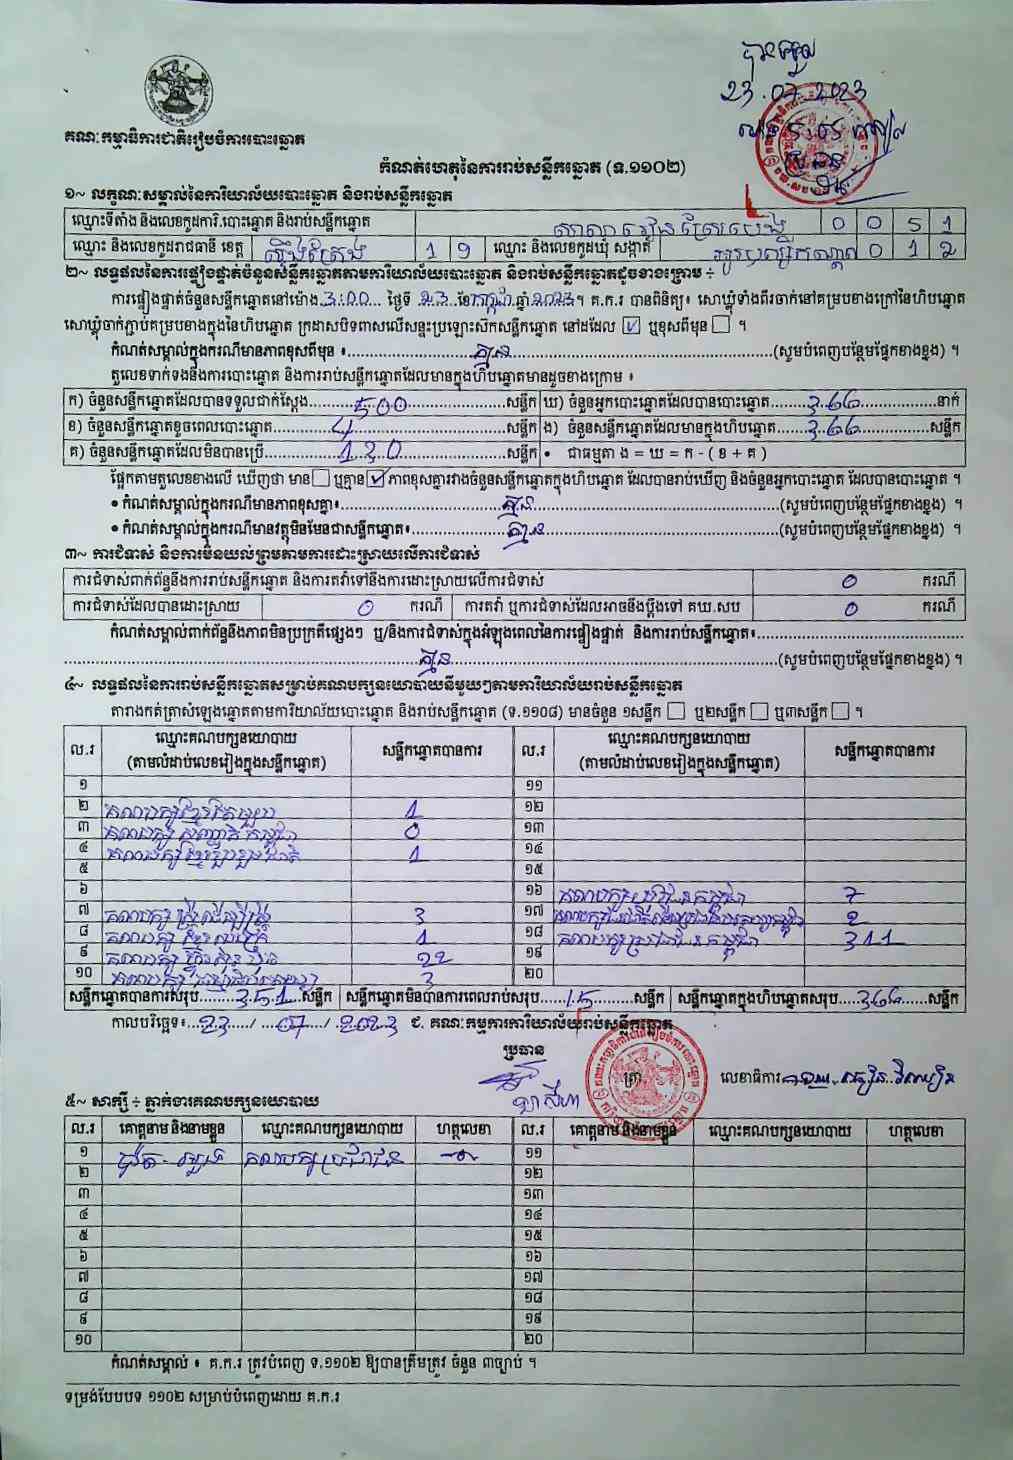 បានទទួល
23.07.2023
គណៈកម្មាធិការជាតិរៀបចំការបោះឆ្នោត
កំណត់ហេតុនៃការរាប់សន្លឹកឆ្នោត (ទ.១១០២)
១~ លក្ខណៈសម្គាល់នៃការិយាល័យបោះឆ្នោត និងរាប់សន្លឹកឆ្នោត
ឈ្មោះទីតាំង និងលេខកូដការិ.បោះឆ្នោត និងរាប់សន្លឹកឆ្នោត សាលារៀនស្រែប៉េង 0 0 5 1
ឈ្មោះ និងលេខកូដរាជធានី ខេត្ត ស្ទឹងត្រែង 1 9 ឈ្មោះ និងលេខកូដឃុំ សង្កាត់ 0 1 2
២~ លទ្ធផលនៃការផ្ទៀងផ្ទាត់ចំនួនសន្លឹកឆ្នោតតាមការិយាល័យបោះឆ្នោត និងរាប់សន្លឹកឆ្នោតដូចខាងក្រោម ÷
ការផ្ទៀងផ្ទាត់ចំនួនសន្លឹកឆ្នោតនៅម៉ោង 3:00 ថ្ងៃទី 23 ខែ កក្កដា ឆ្នាំ 2023។ គ.ក.រ បានពិនិត្យ៖ សោឃ្លុំទាំងពីរចាក់នៅគម្របខាងក្រៅនៃហិបឆ្នោត
សោឃ្លុំចាក់ភ្ជាប់គម្របខាងក្នុងនៃហិបឆ្នោត ក្រដាសបិទពាសលើសន្ទះប្រឡោះស៊កសន្លឹកឆ្នោត នៅដដែល ☑ ឬខុសពីមុន ☐ ។
កំណត់សម្គាល់ក្នុងករណីមានភាពខុសពីមុន ៖ គ្មាន (សូមបំពេញបន្ថែមផ្នែកខាងខ្នង) ។
តួលេខទាក់ទងនឹងការបោះឆ្នោត និងការរាប់សន្លឹកឆ្នោតដែលមានក្នុងហិបឆ្នោតមានដូចខាងក្រោម ៖
ក) ចំនួនសន្លឹកឆ្នោតដែលបានទទួលជាក់ស្តែង 500 សន្លឹក ឃ) ចំនួនអ្នកបោះឆ្នោតដែលបានបោះឆ្នោត 366 នាក់
ខ) ចំនួនសន្លឹកឆ្នោតខូចពេលបោះឆ្នោត 4 សន្លឹក ង) ចំនួនសន្លឹកឆ្នោតដែលមានក្នុងហិបឆ្នោត 366 សន្លឹក
គ) ចំនួនសន្លឹកឆ្នោតដែលមិនបានប្រើ 130 សន្លឹក • ជាធម្មតា ង = ឃ = ក - ( ខ + គ )
ផ្អែកតាមតួលេខខាងលើ ឃើញថា មាន ☐ ឬគ្មាន ☑ ភាពខុសគ្នារវាងចំនួនសន្លឹកឆ្នោតក្នុងហិបឆ្នោត ដែលបានរាប់ឃើញ និងចំនួនអ្នកបោះឆ្នោត ដែលបានបោះឆ្នោត ។
• កំណត់សម្គាល់ក្នុងករណីមានភាពខុសគ្នា៖ គ្មាន (សូមបំពេញបន្ថែមផ្នែកខាងខ្នង) ។
• កំណត់សម្គាល់ក្នុងករណីមានវត្ថុមិនមែនជាសន្លឹកឆ្នោត៖ គ្មាន (សូមបំពេញបន្ថែមផ្នែកខាងខ្នង) ។
៣~ ការជំទាស់ និងការមិនយល់ព្រមតាមការដោះស្រាយលើការជំទាស់
ការជំទាស់ពាក់ព័ន្ធនឹងការរាប់សន្លឹកឆ្នោត និងការតវ៉ាទៅនឹងការដោះស្រាយលើការជំទាស់ 0 ករណី
ការជំទាស់ដែលបានដោះស្រាយ 0 ករណី ការតវ៉ា ឬការជំទាស់ដែលអាចនឹងប្តឹងទៅ គឃ.សប 0 ករណី
កំណត់សម្គាល់ពាក់ព័ន្ធនឹងភាពមិនប្រក្រតីផ្សេងៗ ឬ/និងការជំទាស់ក្នុងអំឡុងពេលនៃការផ្ទៀងផ្ទាត់ និងការរាប់សន្លឹកឆ្នោត៖
គ្មាន (សូមបំពេញបន្ថែមផ្នែកខាងខ្នង) ។
៤~ លទ្ធផលនៃការរាប់សន្លឹកឆ្នោតសម្រាប់គណបក្សនយោបាយនីមួយៗតាមការិយាល័យរាប់សន្លឹកឆ្នោត
តារាងកត់ត្រាសំឡេងឆ្នោតតាមការិយាល័យបោះឆ្នោត និងរាប់សន្លឹកឆ្នោត (ទ.១១០៨) មានចំនួន ១សន្លឹក ☐ ឬ២សន្លឹក ☐ ឬ៣សន្លឹក ☐ ។
ល.រ ឈ្មោះគណបក្សនយោបាយ (តាមលំដាប់លេខរៀងក្នុងសន្លឹកឆ្នោត) សន្លឹកឆ្នោតបានការ ល.រ ឈ្មោះគណបក្សនយោបាយ (តាមលំដាប់លេខរៀងក្នុងសន្លឹកឆ្នោត) សន្លឹកឆ្នោតបានការ
១ ១១
២ គណបក្សខ្មែរតែមួយ 1 ១២
៣ គណបក្ស សញ្ជាតិកម្ពុជា 0 ១៣
៤ គណបក្សខ្មែររួបរួមជាតិ 1 ១៤
៥ ១៥
៦ ១៦ គណបក្ស 7
៧ គណបក្ស ស្ត្រីដើម្បីស្ត្រី 3 ១៧ 2
៨ គណបក្ស 1 ១៨ គណបក្សប្រជាជនកម្ពុជា 311
៩ គណបក្ស ហ្វ៊ុនស៊ិនប៉ិច 22 ១៩
១០ គណបក្ស 3 ២០
សន្លឹកឆ្នោតបានការសរុប 351 សន្លឹក សន្លឹកឆ្នោតមិនបានការពេលរាប់សរុប 15 សន្លឹក សន្លឹកឆ្នោតក្នុងហិបឆ្នោតសរុប 366 សន្លឹក
កាលបរិច្ឆេទ៖ 23 / 07 / 2023 ជ. គណៈកម្មការការិយាល័យរាប់សន្លឹកឆ្នោត
ប្រធាន
ត្រា
លេខាធិការ
៥~ សាក្សី ÷ ភ្នាក់ងារគណបក្សនយោបាយ
ល.រ គោត្តនាម និងនាមខ្លួន ឈ្មោះគណបក្សនយោបាយ ហត្ថលេខា ល.រ គោត្តនាម និងនាមខ្លួន ឈ្មោះគណបក្សនយោបាយ ហត្ថលេខា
១ គណបក្សប្រជាជន ១១
២ ១២
៣ ១៣
៤ ១៤
៥ ១៥
៦ ១៦
៧ ១៧
៨ ១៨
៩ ១៩
១០ ២០
កំណត់សម្គាល់ ៖ គ.ក.រ ត្រូវបំពេញ ទ.១១០២ ឱ្យបានត្រឹមត្រូវ ចំនួន ៣ច្បាប់ ។
ទម្រង់បែបបទ ១១០២ សម្រាប់បំពេញដោយ គ.ក.រ